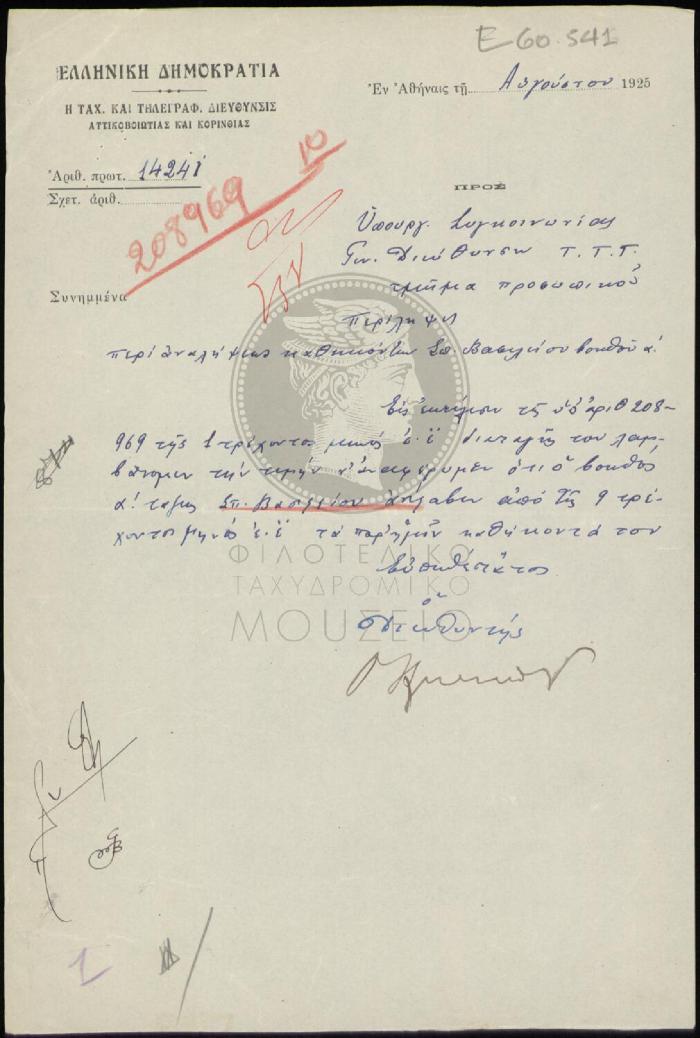 E 60.541
ΕΛΛΗΝΙΚΗ ΔΗΜΟΚΡΑΤΙΑ
Η ΤΑΧ. ΚΑΙ ΤΗΛΕΓΡΑΦ. ΔΙΕΥΘΥΝΣΙΣ
ΑΤΤΙΚΟΒΟΙΩΤΙΑΣ ΚΑΙ ΚΟΡΙΝΘΙΑΣ
Ἐν Ἀθήναις τῇ Αὐγούστου 1925
Ἀριθ. πρωτ. 14241
Σχετ. ἀριθ.
208969
10
Συνημμένα
ΠΡΟΣ
Ὑπουργ. Συγκοινωνίας
Γεν. Διεύθυνσιν Τ.Τ.Τ.
τμῆμα προσωπικοῦ
Περίληψις
περὶ ἀναλήψεως καθηκόντων Σπ. Βασιλείου βοηθοῦ α΄.
Εἰς ἐκτέλεσιν τῆς ὑπ' ἀριθ 208-
969 τῆς 1 τρέχοντος μηνός ἐ.ἔ. διαταγῆς του λαμ-
βάνομεν τὴν τιμὴν ν' ἀναφέρωμεν ὅτι ὁ βοηθὸς
α΄ τάξης Σπ. Βασιλείου ἀνέλαβεν ἀπὸ τῆς 9 τρέ-
χοντος μηνός ἐ.ἔ. τὰ παρ' ἡμῖν καθήκοντά του
Εὐπειθέστατος
ὁ
Διευθυντής
ΦΙΛΟΤΕΛΙΚΟ
ΤΑΧΥΔΡΟΜΙΚΟ
ΜΟΥΣΕΙΟ
1